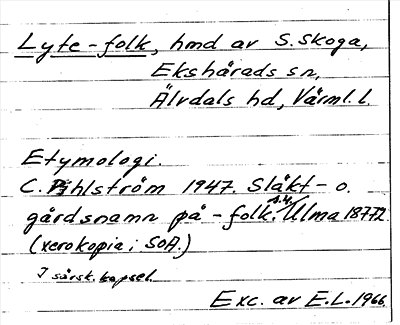 Lyte-folk, hmd av S. Skoga,
Ekshärads sn,
Älvdals hd, Värml. l.
Etymologi.
C. Påhlström 1947. Släkt- o.
gårdsnamn på -folk. s.4, Ulma 18772
(xerokopia i SOA.)
I särsk. kapsel.
Exc. av E.L. 1966.